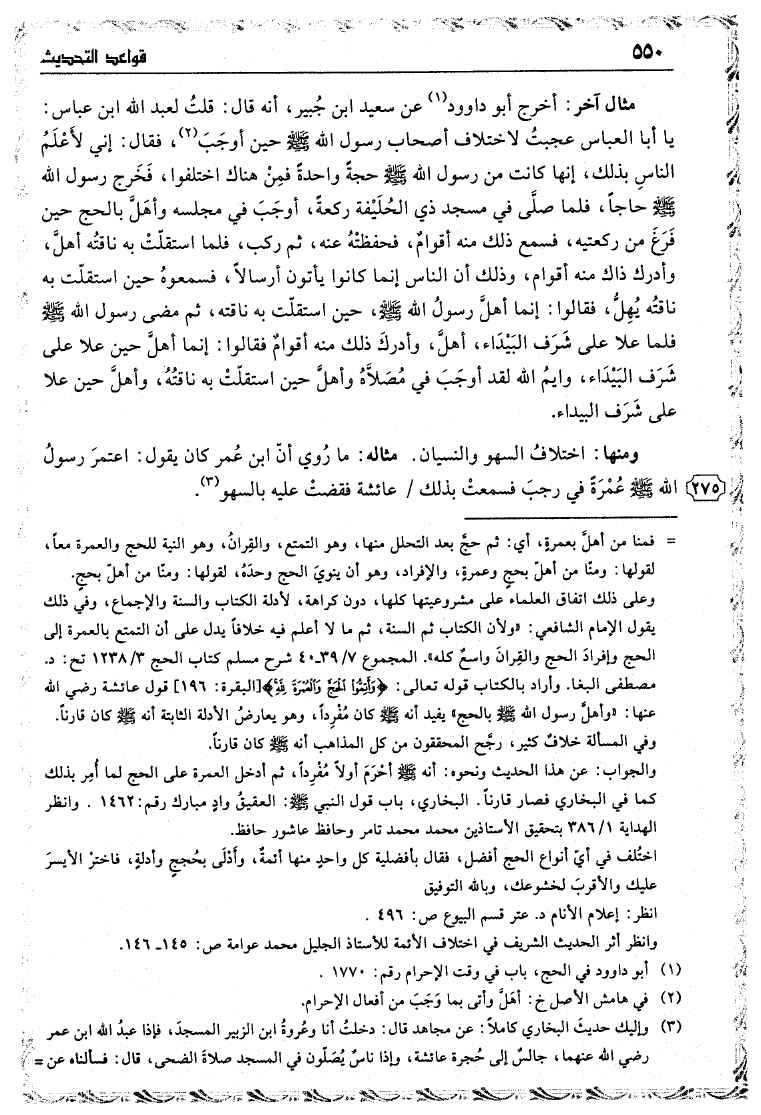 ٥٥٠
قواعد التحديث
مثال آخر: أخرج أبو داوود(١) عن سعيد ابن جُبير، أنه قال: قلتُ لعبد الله ابن عباس:
يا أبا العباس عجبتُ لاختلاف أصحاب رسول الله ﷺ حين أوجَبَ(٢)، فقال: إني لأَعْلَمُ
الناسِ بذلك، إنها كانت من رسول الله ﷺ حجةً واحدةً فمِنْ هناك اختلفوا، فَخَرج رسول الله
ﷺ حاجاً، فلما صلَّى في مسجد ذي الحُلَيْفة ركعةً، أوجَبَ في مجلسه وأهَلَّ بالحج حين
فَرَغَ من ركعتيه، فسمع ذلك منه أقوامٌ، فحفظتْهُ عنه، ثم ركب، فلما استقلّتْ به ناقتُه أهلَّ،
وأدرك ذاك منه أقوام، وذلك أن الناس إنما كانوا يأتون أرسالاً، فسمعوهُ حين استقلّت به
ناقتُه يُهِلُّ، فقالوا: إنما أهلَّ رسولُ الله ﷺ، حين استقلّت به ناقته، ثم مضى رسول الله ﷺ
فلما علا على شَرَف البَيْدَاء، أهلَّ، وأدركَ ذلك منه أقوامٌ فقالوا: إنما أهلَّ حين علا على
شَرَف البَيْدَاء، وايمُ الله لقد أوجَبَ في مُصَلاَّهُ وأهلَّ حين استقلّتْ به ناقتُهُ، وأهلَّ حين علا
على شَرَف البيداء.
ومنها: اختلافُ السهو والنسيان. مثاله: ما رُوي أنّ ابن عُمر كان يقول: اعتمرَ رسولُ
٢٧٥ الله ﷺ عُمْرَةً في رجبَ فسمعتْ بذلك / عائشة فقضتْ عليه بالسهو(٣).
= فمنا من أهلَّ بعمرةٍ، أي: ثم حجَّ بعد التحلل منها، وهو التمتع، والقِرانُ، وهو النية للحج والعمرة معاً،
لقولها: ومنّا من أهلّ بحجٍ وعمرةٍ، والإفراد، وهو أن ينويَ الحج وحدَهُ، لقولها: ومنّا من أهلّ بحجٍ.
وعلى ذلك اتفاق العلماء على مشروعيتها كلها، دون كراهة، لأدلة الكتاب والسنة والإجماع، وفي ذلك
يقول الإمام الشافعي: «ولأن الكتاب ثم السنة، ثم ما لا أعلم فيه خلافاً يدل على أن التمتع بالعمرة إلى
الحج وإفرادَ الحج والقِرانَ واسعٌ كله». المجموع ٣٩/٧ـ٤٠ شرح مسلم كتاب الحج ١٢٣٨/٣ تح: د.
مصطفى البغا. وأراد بالكتاب قوله تعالى: ﴿وَأَتِمُّوا الْحَجَّ وَالْعُمْرَةَ لِلَّهِ﴾[البقرة: ١٩٦] قول عائشة رضي الله
عنها: «وأهلَّ رسول الله ﷺ بالحج» يفيد أنه ﷺ كان مُفْرِداً، وهو يعارضُ الأدلة الثابتة أنه ﷺ كان قارناً.
وفي المسألة خلافٌ كثير، رجَّح المحققون من كل المذاهب أنه ﷺ كان قارناً.
والجواب: عن هذا الحديث ونحوه: أنه ﷺ أحْرَمَ أولاً مُفْرِداً، ثم أدخل العمرة على الحج لما أُمِر بذلك
كما في البخاري فصار قارناً. البخاري، باب قول النبي ﷺ: العقيقُ وادٍ مبارك رقم: ١٤٦٢ . وانظر
الهداية ٣٨٦/١ بتحقيق الأستاذين محمد محمد تامر وحافظ عاشور حافظ.
اختُلف في أيّ أنواع الحج أفضل، فقال بأفضلية كل واحدٍ منها أئمةٌ، وأَدْلَى بحُججٍ وأدلةٍ، فاخترْ الأيسرَ
عليك والأقربَ لخشوعك، وبالله التوفيق
انظر: إعلام الأنام د. عتر قسم البيوع ص: ٤٩٦ .
وانظر أثر الحديث الشريف في اختلاف الأئمة للأستاذ الجليل محمد عوامة ص: ١٤٥ـ ١٤٦.
(١) أبو داوود في الحج، باب في وقت الإحرام رقم: ١٧٧٠ .
(٢) في هامش الأصل خ: أهَلَّ وأتى بما وَجَبَ من أفعال الإحرام.
(٣) وإليك حديثَ البخاري كاملاً: عن مجاهد قال: دخلتُ أنا وعُروةُ ابن الزبير المسجدَ، فإذا عبدُ الله ابن عمر
رضي الله عنهما، جالسٌ إلى حُجرة عائشة، وإذا ناسٌ يُصَلّون في المسجد صلاةَ الضحى، قال: فسألناه عن =